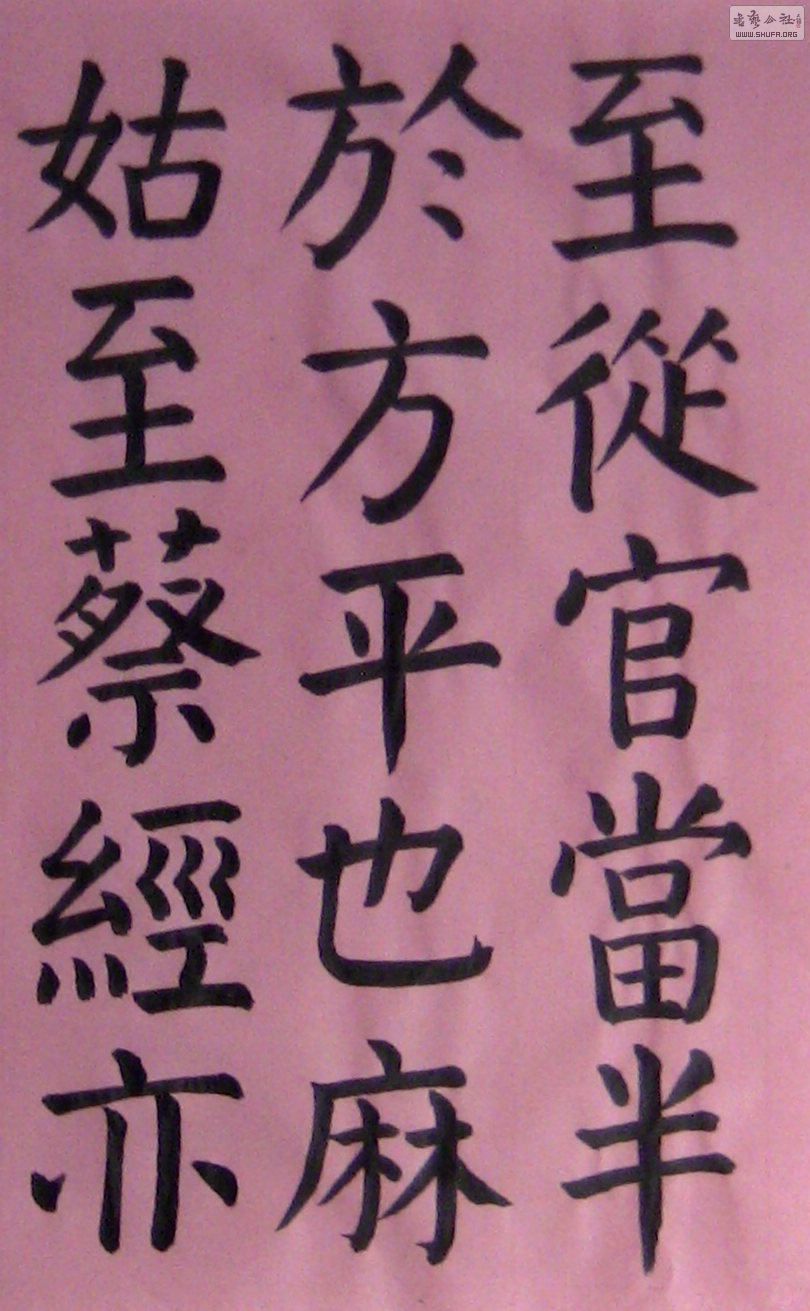 至從官當半
於方平也麻
姑至蔡經亦
WWW.SHUFA.ORG